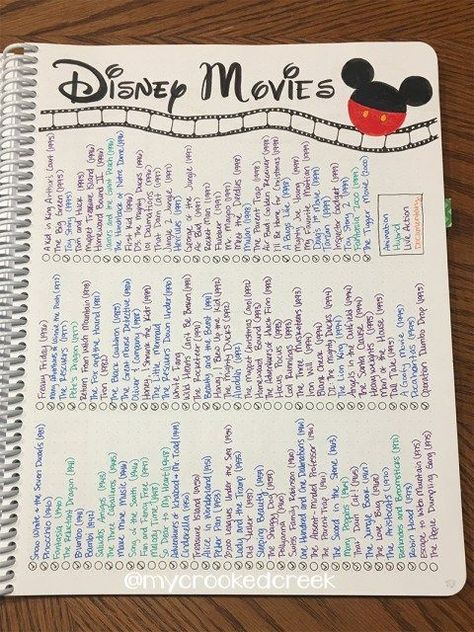 Disney Movies
Animation
Hybrid
Live Action
Documentary
Snow White & the Seven Dwarfs (1937)
Pinocchio (1940)
Fantasia (1940)
The Reluctant Dragon (1941)
Dumbo (1941)
Bambi (1942)
Saludos Amigos (1942)
The Three Caballeros (1945)
Make Mine Music (1946)
Song of the South (1946)
Fun and Fancy Free (1947)
Melody Time (1948)
So Dear to My Heart (1949)
Adventures of Ichabod & Mr. Toad (1949)
Cinderella (1950)
Treasure Island (1950)
Alice in Wonderland (1951)
Peter Pan (1953)
20,000 Leagues Under the Sea (1954)
Lady and the Tramp (1955)
Old Yeller (1957)
Sleeping Beauty (1959)
The Shaggy Dog (1959)
Pollyanna (1960)
Swiss Family Robinson (1960)
One Hundred and One Dalmatians (1961)
The Absent-Minded Professor (1961)
The Parent Trap (1961)
The Sword in the Stone (1963)
Mary Poppins (1964)
That Darn Cat! (1965)
The Jungle Book (1967)
The Love Bug (1968)
The Aristocats (1970)
Bedknobs and Broomsticks (1971)
Robin Hood (1973)
Escape to Witch Mountain (1975)
The Apple Dumpling Gang (1975)
Freaky Friday (1976)
The Rescuers (1977)
Pete's Dragon (1977)
Return From Witch Mountain (1978)
The Fox and the Hound (1981)
Tron (1982)
The Black Cauldron (1985)
The Great Mouse Detective (1986)
Oliver & Company (1988)
Honey, I Shrunk the Kids (1989)
The Little Mermaid (1989)
The Rescuers Down Under (1990)
White Fang (1991)
Wild Hearts Can't Be Broken (1991)
Beauty and the Beast (1991)
Honey, I Blew Up the Kid (1992)
The Mighty Ducks (1992)
Aladdin (1992)
The Muppet Christmas Carol (1992)
Homeward Bound (1993)
The Adventures of Huck Finn (1993)
Hocus Pocus (1993)
Cool Runnings (1993)
The Three Musketeers (1993)
Iron Will (1994)
Blank Check (1994)
D2: The Mighty Ducks (1994)
The Lion King (1994)
Angels in the Outfield (1994)
The Santa Clause (1994)
Heavyweights (1995)
Man of the House (1995)
Tall Tale (1995)
A Goofy Movie (1995)
Pocahontas (1995)
Operation Dumbo Drop (1995)
A Kid in King Arthur's Court (1995)
The Big Green (1995)
Toy Story (1995)
Tom and Huck (1995)
Muppet Treasure Island (1996)
Homeward Bound II (1996)
James and the Giant Peach (1996)
The Hunchback of Notre Dame (1996)
First Kid (1996)
D3: The Mighty Ducks (1996)
101 Dalmatians (1996)
That Darn Cat (1997)
Jungle 2 Jungle (1997)
Hercules (1997)
George of the Jungle (1997)
Air Bud (1997)
Rocket Man (1997)
Flubber (1997)
Mr. Magoo (1997)
Meet the Deedles (1998)
Mulan (1998)
The Parent Trap (1998)
Air Bud: Golden Receiver (1998)
I'll Be Home for Christmas (1998)
A Bug's Life (1998)
Mighty Joe Young (1998)
My Favorite Martian (1999)
Doug's 1st Movie (1999)
Tarzan (1999)
Inspector Gadget (1999)
Toy Story 2 (1999)
Fantasia 2000 (1999)
The Tigger Movie (2000)
@mycrookedcreek